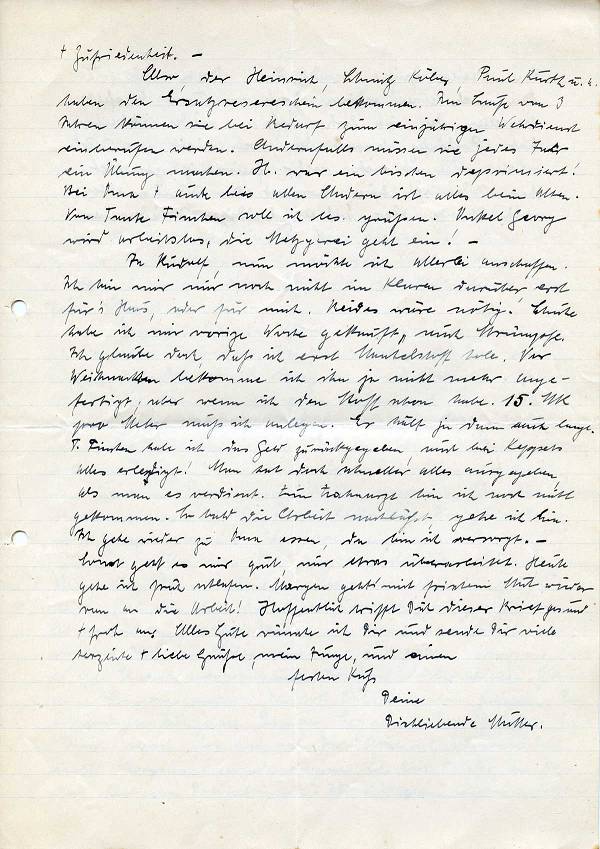 + Zufriedenheit. –
Also, der Heinrich, Schmitz, Paul Kurth u. a.
haben den Ersatzreserveschein bekommen. Im Laufe von 3
Jahren können sie bei Bedarf zum einjährigen Wehrdienst
einberufen werden. Andernfalls müssen sie jedes Jahr
ein Übung machen. H. war ein bischen deprimiert!
Bei Oma + auch bei allen Andern ist alles beim Alten.
Von Tante Finchen soll ich grüßen. Onkel Georg
wird arbeitslos, die Metzgerei geht ein! –
Ja Rudolf, nun möchte ich allerlei anschaffen.
Ich bin mir nur noch nicht im Klaren darüber erst
für's Haus, oder für mich. Beides wäre nötig!
habe ich mir vorige Woche gekauft, auch Strümpfe.
Ich glaube doch, daß ich erst Mantelstoff hole. Vor
Weihnachten bekomme ich ihn ja nicht mehr ange-
fertigt, aber wenn ich den Stoff schon habe. 15. MK
pro Meter muß ich anlegen. Er hält ja dann auch lange.
T. Finchen habe ich das Geld zurückgegeben, auch bei
alles erledigt! Man hat doch schneller alles ausgegeben,
als man es verdient. Zum Zahnarzt bin ich noch nicht
gekommen. So bald die Arbeit nachläßt, gehe ich hin.
Ich gehe wieder zu Oma essen, da bin ich versorgt. –
Sonst geht es mir gut, nur etwas überarbeitet. Heute
gehe ich früh schlafen. Morgen gehts mit frischem Mut wieder
ran an die Arbeit! Hoffentlich trifft Dich dieser Brief gesund
+ froh an. Alles Gute wünsche ich Dir und sende Dir viele
herzliche + liebe Grüße, mein Junge, und einen
festen Kuß
Deine
Dichliebende Mutter.